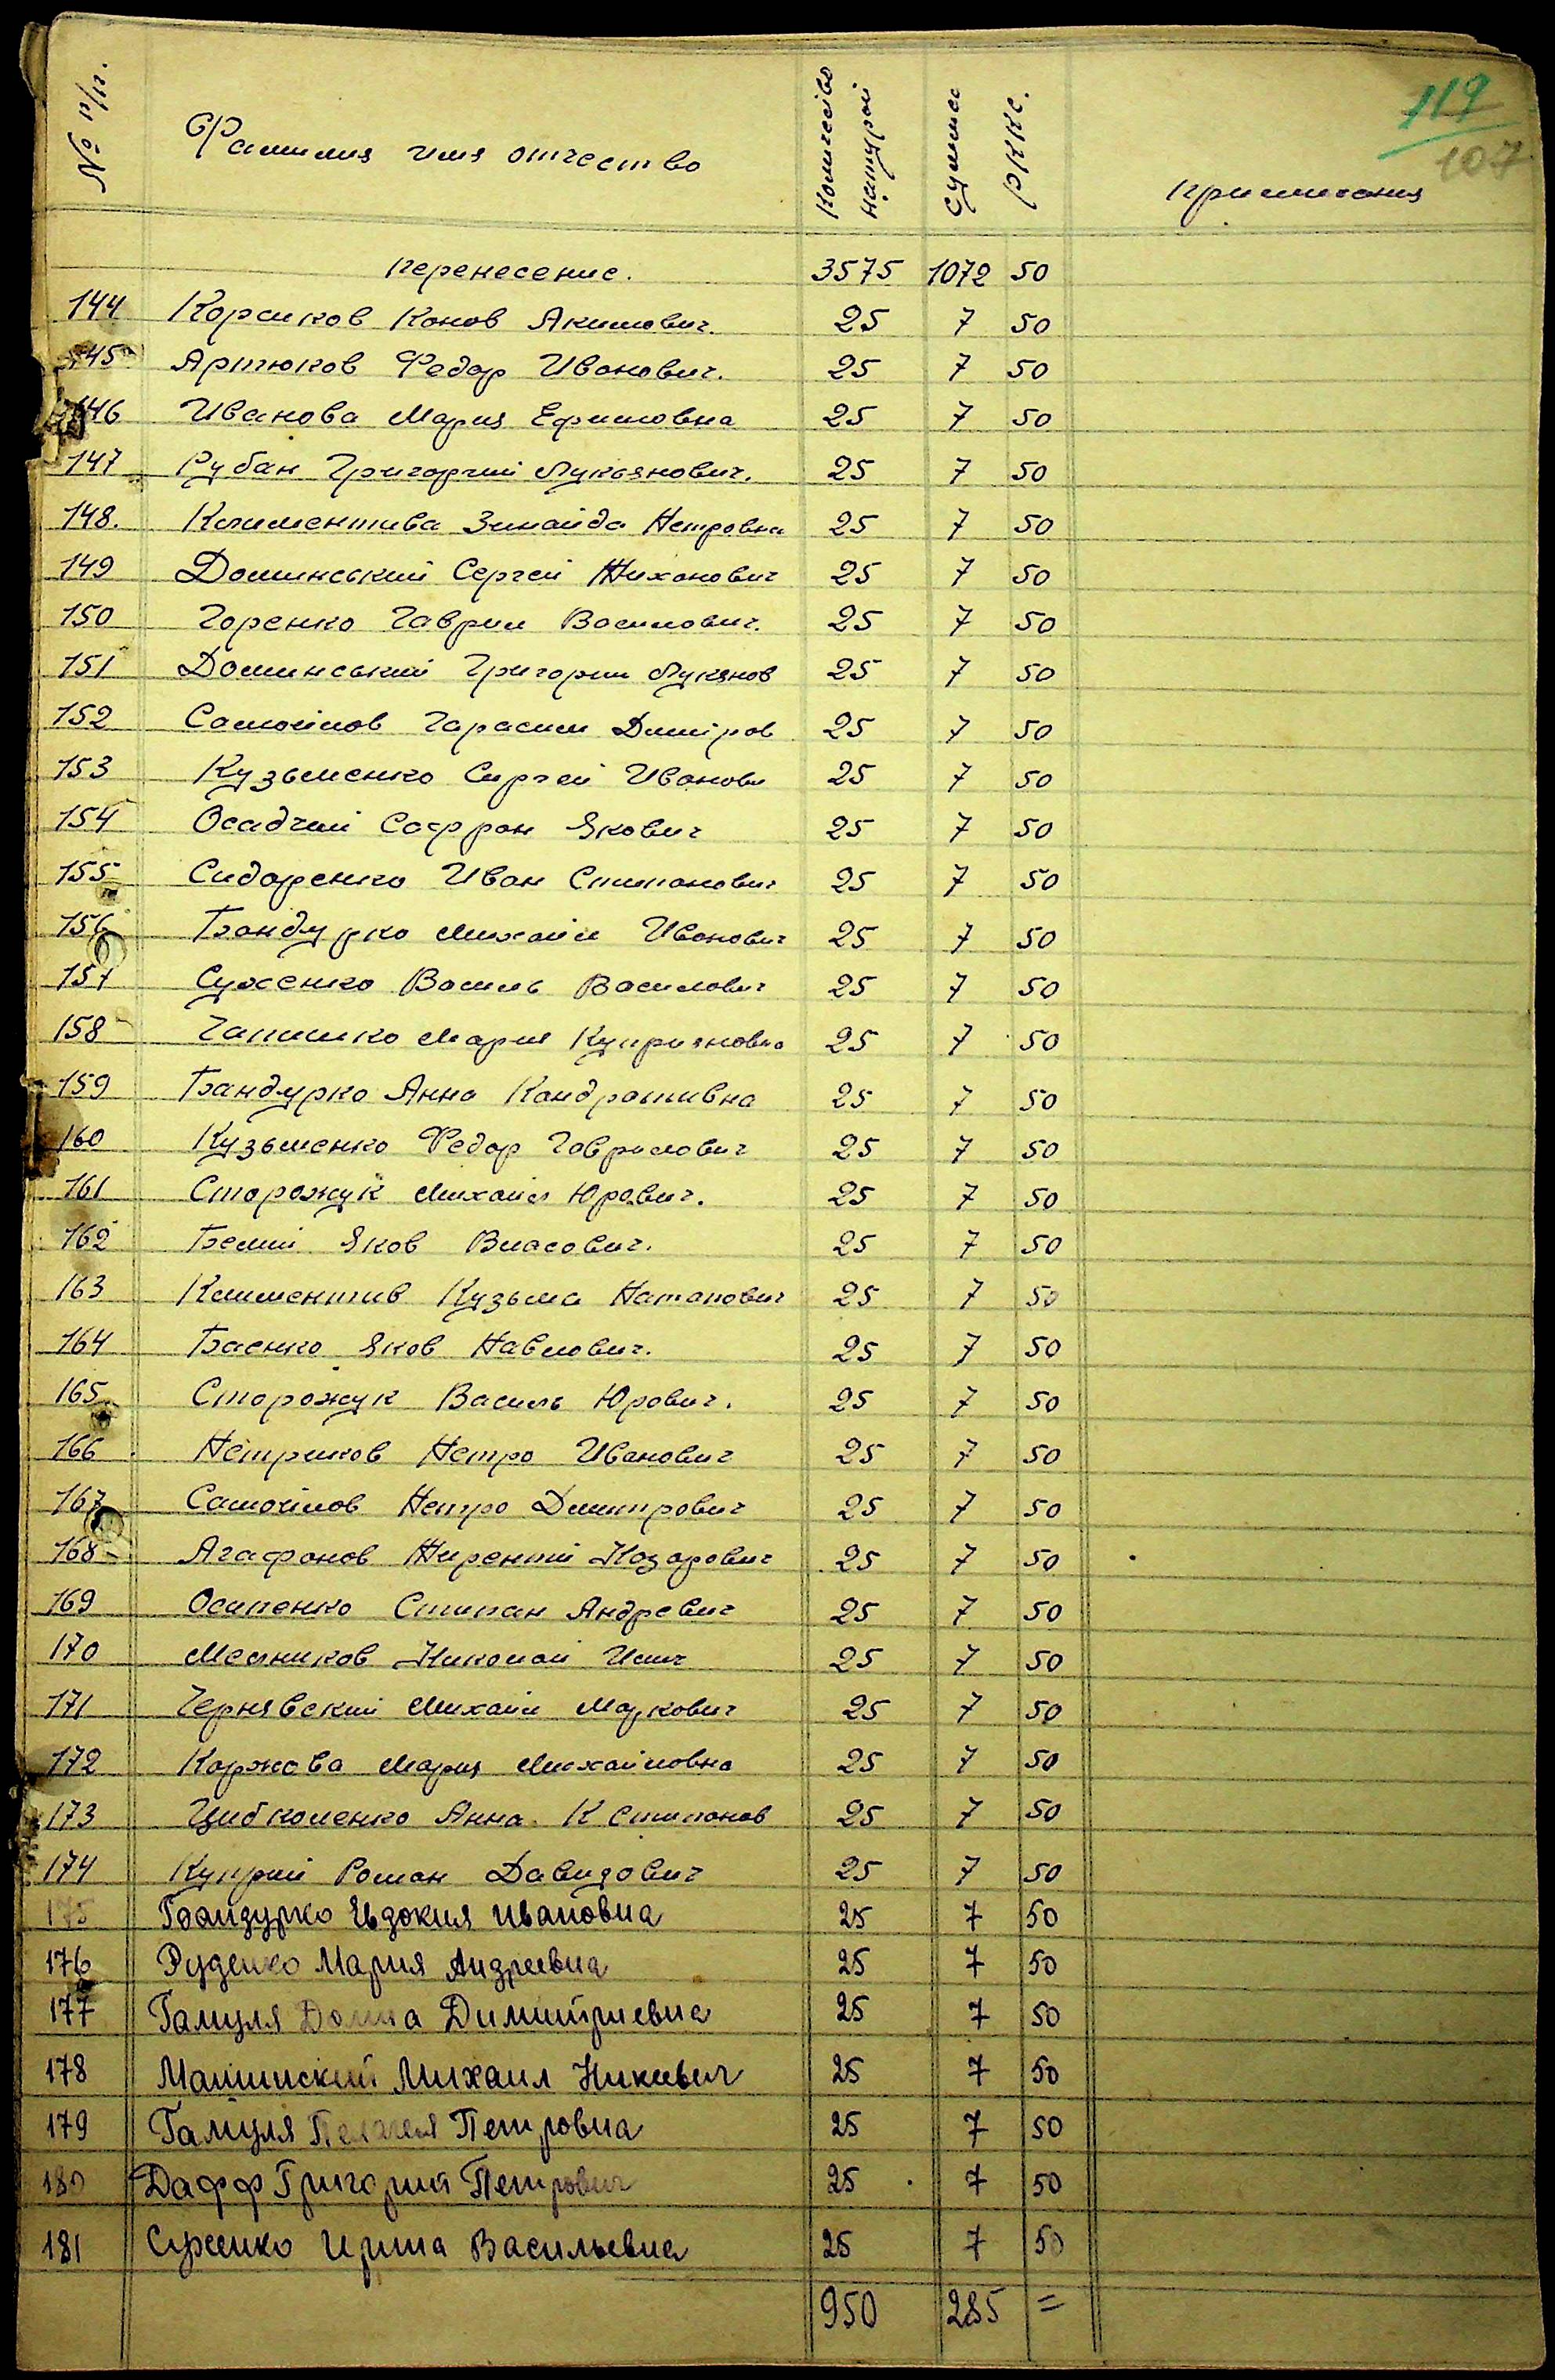 119
107
№ п/п. Фамилия имя отчество Количество натурой Сумма РККС. Примичания
перенесение. 3575 1072 50
144 Корсиков Конов Акимович. 25 7 50
145 Артюков Федор Иванович. 25 7 50
146 Иванова Мария Ефимовна 25 7 50
147 Рубан Григорчий Лукьянович. 25 7 50
148. Климентива Зинаида Петровна 25 7 50
149 Доминський Сергей Тиханович 25 7 50
150 Горенко Гаврил Василович. 25 7 50
151 Доминський Григории Лукянов 25 7 50
152 Самоілов Гарасим Дмитров 25 7 50
153 Кузьменко Сиргей Иванови 25 7 50
154 Осадчий Соффрон Якович 25 7 50
155 Сидоренко Иван Стипанович 25 7 50
156 Бандурко Михаил Иванович 25 7 50
157 Суженко Василь Василович 25 7 50
158 Мария Куприяновна 25 7 50
159 Бандурко Анна Кондративна 25 7 50
160 Кузьменко Федор Гаврилович 25 7 50
161 Сторожук Михаил Юрович. 25 7 50
162 Белий Яков Власович. 25 7 50
163 Климентив Кузьма Патапович 25 7 50
164 Баенко Яков Павлович. 25 7 50
165 Сторожук Василь Юрович. 25 7 50
166 Петриков Петро Иванович 25 7 50
167 Самоілов Петро Дмитрович 25 7 50
168 Агафонов Тирентий Назарович 25 7 50
169 Осипенко Стипан Андревич 25 7 50
170 Мельников Николай Илич 25 7 50
171 Чернявский Михаил Маркович 25 7 50
172 Коржова Мария Михайловна 25 7 50
173 Цибколенко Анна К Стипанов 25 7 50
174 Куприй Роман Давидович 25 7 50
175 Бандурко Евдокия Ивановна 25 7 50
176 Руденко Мария Андреевна 25 7 50
177 Гамуля Домна Димитриевна 25 7 50
178 Малинский Михаил Никиевич 25 7 50
179 Гамуля Пелагея Петровна 25 7 50
180 Дафф Григорий Петрович 25 7 50
181 Суженко Ирина Васильевна 25 7 50
950 285 =